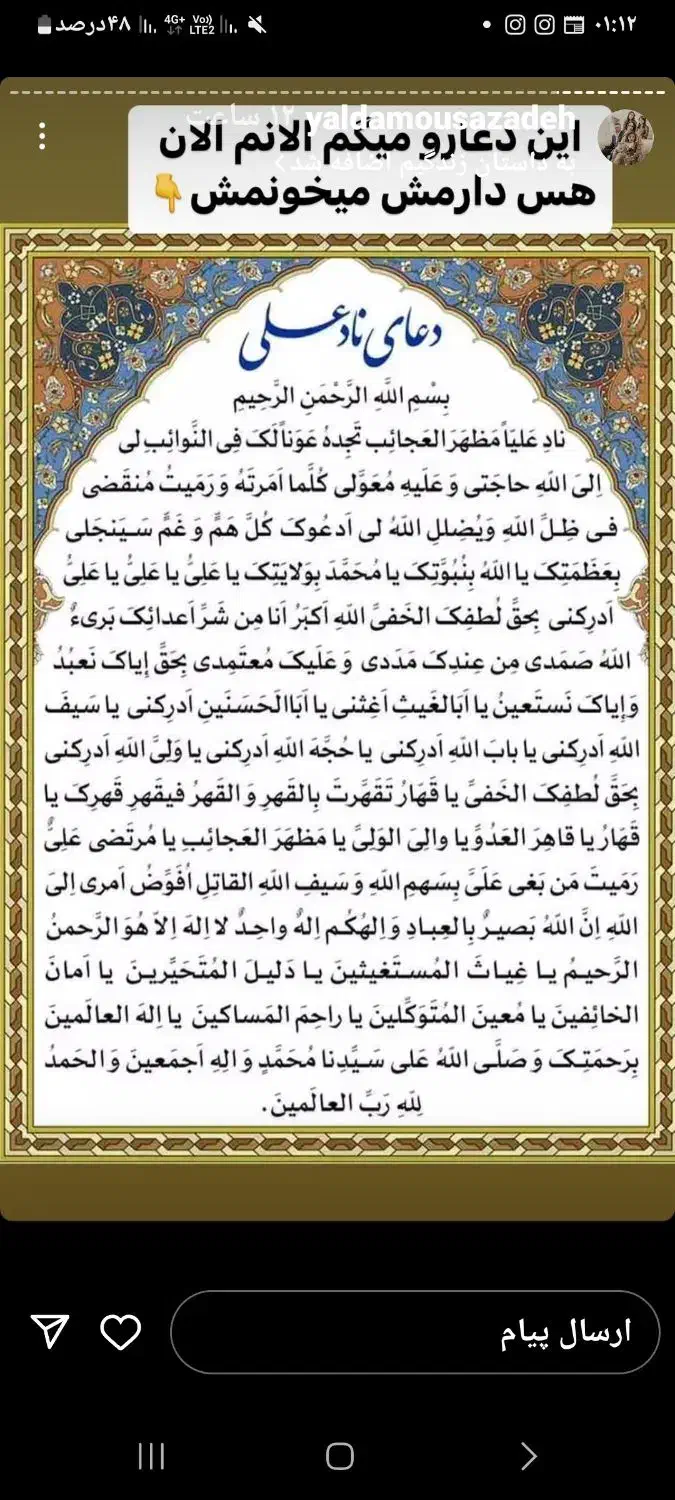 ۰۱:۱۲
۴۸درصد
4G+
Vo)) LTE2
yaldamousazadeh ۱۲ ساعت
به داستان زندگیم اضافه شد
این دعارو میگم الانم الان
هس دارمش میخونمش👇
دعای ناد علی
بِسْمِ اللَّهِ الرَّحْمَنِ الرَّحِيمِ
نادِ عَلیَاً مَظهَرَ العَجائِب تَجِدهُ عَوناً لَکَ فِی النَّوائِب لی
اِلیَ اللهِ حاجَتی وَ عَلَیهِ مُعَوَّلی کُلَّما اَمَرتَهُ وَ رَمَیتُ مُنقَضی
فی ظِلَّ اللهِ وَیُضلِلِ اللهُ لی اَدعُوکَ کُلَّ هَمًّ وَ غَمًّ سَیَنجَلی
بِعَظَمَتِکَ یا اللهُ بِنُبُوَّتِکَ یا مُحَمَّدَ بِوَلایَتِکَ یا عَلِیُّ یا عَلِیُّ یا عَلِیُّ
اَدرِکنی بِحقَّ لُطفِکَ الخَفیَّ اللهِ اَکبَرُ اَنا مِن شَرَّ اَعدائِکَ بَریءٌ
اللهُ صَمَدی مِن عِندِکَ مَدَدی وَ عَلَیکَ مُعتَمِدی بِحَقَّ إیاکَ نَعبُدُ
وَإیاکَ نَستَعینُ یا اَبَالغَیثِ اَغِثنی یا اَبَاالحَسَنَینِ اَدرِکنی یا سَیفَ
اللهِ اَدرِکنی یا بابَ اللهِ اَدرِکنی یا حُجَّهَ اللهِ اَدرِکنی یا وَلِیَّ اللهِ اَدرِکنی
بِحَقَّ لُطفِکَ الخَفیَّ یا قَهارُ تَقَهَّرتَ بِالقَهرِ وَ القَهرُ فیقَهرِ قَهرِکَ یا
قَهّارُ یا قاهِرَ العَدُوَّ یا والِیَ الوَلِیَّ یا مَظهَرَ العَجائِبِ یا مُرتَضی عَلِیُّ
رَمَیتَ مَن بَغی عَلَیَّ بِسَهمِ اللهِ وَ سَیفِ اللهِ القاتِلِ اُفَوَّضُ اَمری اِلیَ
اللهِ اِنَّ اللهُ بَصیرٌ بِالعِبادِ وَ اِلهُکُم اِلهٌ واحِدٌ لا اِلهَ اِلاّ هُوَ الرَّحمنُ
الرَّحیمُ یا غِیاثَ المُستَغیثینَ یا دَلیلَ المُتَحَیَّرینَ یا اَمانَ
الخائِفینَ یا مُعینَ المُتَوَکَّلینَ یا راحِمَ المَساکینَ یا اِلهَ العالَمینَ
بِرَحمَتِکَ وَ صَلَّی اللهُ عَلی سَیَّدِنا مُحَمَّدٍ وَ الِهِ اَجمَعینَ وَ الحَمدُ
لِلّهِ رَبَّ العالَمینَ.
ارسال پیام